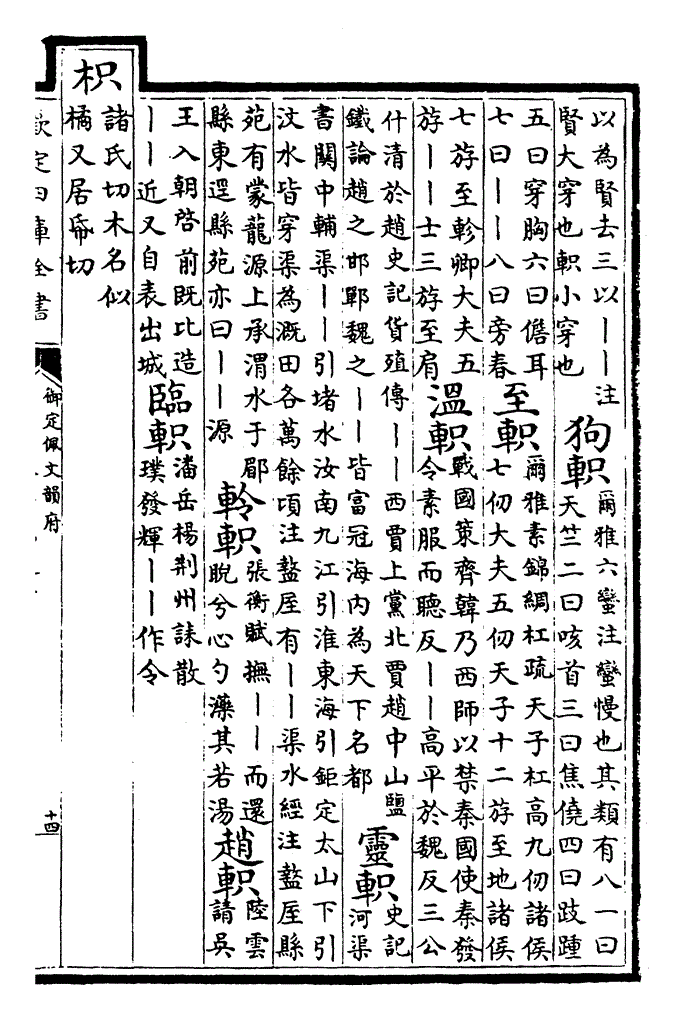 以為賢去三以丨丨注
賢大穿也軹小穿也
狗軹
爾雅六蠻注蠻慢也其類有八一曰
天竺二曰咳首三曰焦僥四曰跂踵
五曰穿胸六曰儋耳
七曰丨丨八曰旁春
至軹
爾雅素錦綢杠疏天子杠高九仞諸侯
七仞大夫五仞天子十二斿至地諸侯
七斿至軫卿大夫五
斿丨丨士三斿至肩
溫軹
戰國策齊韓乃西師以禁秦國使秦發
令素服而聽反丨丨高平於魏反三公
什清於趙史記貨殖傳丨丨西賈上黨北賈趙中山鹽
鐵論趙之邯鄲魏之丨丨皆富冠海內為天下名都
靈軹
史記
河渠
書關中輔渠丨丨引堵水汝南九江引淮東海引鉅定太山下引
汶水皆穿渠為溉田各萬餘頃注盩厔有丨丨渠水經注盩厔縣
苑有蒙龍源上承渭水于郿
縣東逕縣苑亦曰丨丨源
軨軹
張衡賦撫丨丨而還
睨兮心勺藻其若湯
趙軹
陸雲
請吳
王入朝啓前既比造
丨丨近又自表出城
臨軹
潘岳楊荆州誄散
璞發輝丨丨作令
枳
諸氏切木名似
橘又居帋切
欽定四庫全書
御定佩文韻府
十四